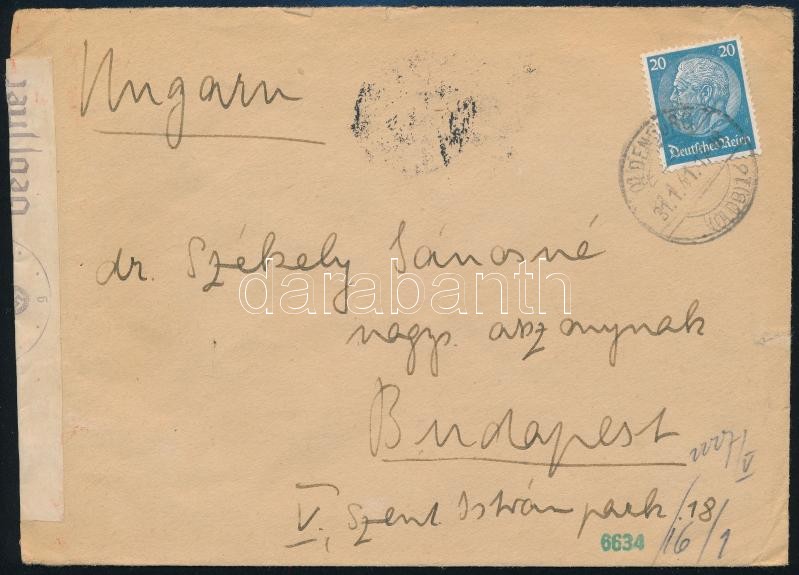 Ungarn
20 20
Deutsches Reich
OLDENBURG
31.1.41
(OLDB)1
Geöffnet
6
dr. Székely Jánosné
nagys. asszonynak
Budapest
V., Szent István park. 18
/16/1
6634
darabanth